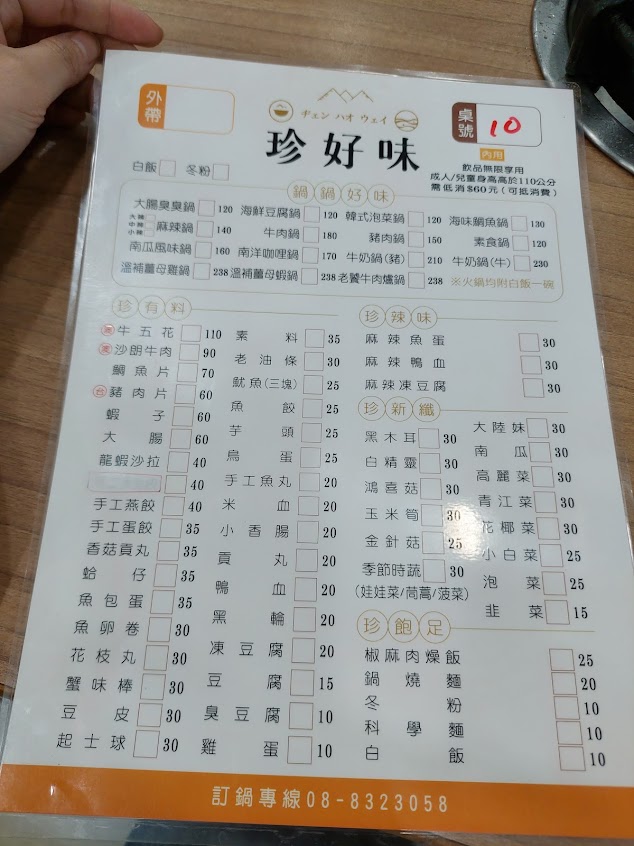 外帶
ヂェン ハオ ウェイ
珍好味
桌號 10
內用
飲品無限享用
成人/兒童身高高於110公分
需低消$60元(可抵消費)
白飯 冬粉
鍋鍋好味
大腸臭臭鍋 120 海鮮豆腐鍋 120 韓式泡菜鍋 120 海味鯛魚鍋 130
大辣 中辣 小辣 麻辣鍋 140 牛肉鍋 180 豬肉鍋 150 素食鍋 120
南瓜風味鍋 160 南洋咖哩鍋 170 牛奶鍋(豬) 210 牛奶鍋(牛) 230
溫補薑母雞鍋 238 溫補薑母蝦鍋 238 老饕牛肉爐鍋 238 ※火鍋均附白飯一碗
珍有料
牛五花 110
沙朗牛肉 90
鯛魚片 70
豬肉片 60
蝦子 60
大腸 60
龍蝦沙拉 40
40
手工燕餃 40
手工蛋餃 35
香菇貢丸 35
蛤仔 35
魚包蛋 35
魚卵卷 30
花枝丸 30
蟹味棒 30
豆皮 30
起士球 30
素料 35
老油條 30
魷魚(三塊) 25
魚餃 25
芋頭 25
鳥蛋 25
手工魚丸 20
米血 20
小香腸 20
貢丸 20
鴨血 20
黑輪 20
凍豆腐 20
豆腐 15
臭豆腐 10
雞蛋 10
珍辣味
麻辣魚蛋 30
麻辣鴨血 30
麻辣凍豆腐 30
珍新纖
黑木耳 30
白精靈 30
鴻喜菇 30
玉米筍 30
金針菇 25
季節時蔬 30
(娃娃菜/茼蒿/菠菜)
大陸妹 30
南瓜 30
高麗菜 30
青江菜 30
花椰菜 30
小白菜 25
泡菜 25
韭菜 15
珍飽足
椒麻肉燥飯 25
鍋燒麵 20
冬粉 10
科學麵 10
白飯 10
訂鍋專線08-8323058